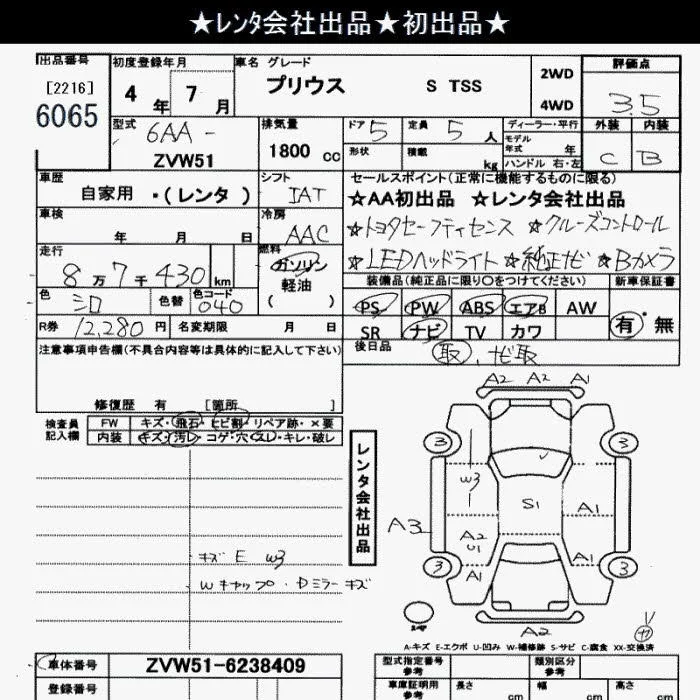 ★レンタ会社出品★初出品★
出品番号 初度登録年月 車名 グレード 評価点
[2216]
6065
4 年 7 月
プリウス S TSS
2WD
4WD
3.5
型式 6AA-
ZVW51
排気量
1800 cc
ドア 5 定員 5 人
形状 積載 kg
ディーラー・平行
モデル年式 年
ハンドル 右・左
外装 内装
C B
車歴
自家用 ・(レンタ )
シフト
IAT
セールスポイント(正常に機能するものに限る)
★AA初出品 ★レンタ会社出品
☆トヨタセーフティセンス ☆クルーズコントロール
☆LEDヘッドライト ☆純正ナビ ☆Bカメラ
車検
年 月 日
冷房
AAC
走行
8 万 7 千 430 km
燃料
ガソリン
軽油
( )
装備品(純正品に限り○をつけてください) 新車保証書
PS PW ABS エアB AW
SR ナビ TV カワ
有・無
色 シロ 色替 色コード 040
R券 12,280 円 名変期限 月 日
後日品 取, ナビ取
注意事項申告欄(不具合内容等は具体的に記入して下さい)
修復歴 有 [箇所 ]
検査員
記入欄
FW キズ・飛石・ヒビ割・リペア跡・×要
内装 キズ・汚レ・コゲ・穴・スレ・キレ・破レ
レンタ会社出品
A2 A2 A1
3 3
W3
S1
A1
A3
A2
U1
A1 A1
3 3
A2
キズ E W3
Wキャップ・Dミラーキズ
A-キズ E-エクボ U-凹み W-補修跡 S-サビ C-腐食 XX-交換済
車体番号 ZVW51-6238409
登録番号
型式指定番号
参考
類別区分
参考
車庫証明用
参考
長さ cm 幅 cm 高さ cm